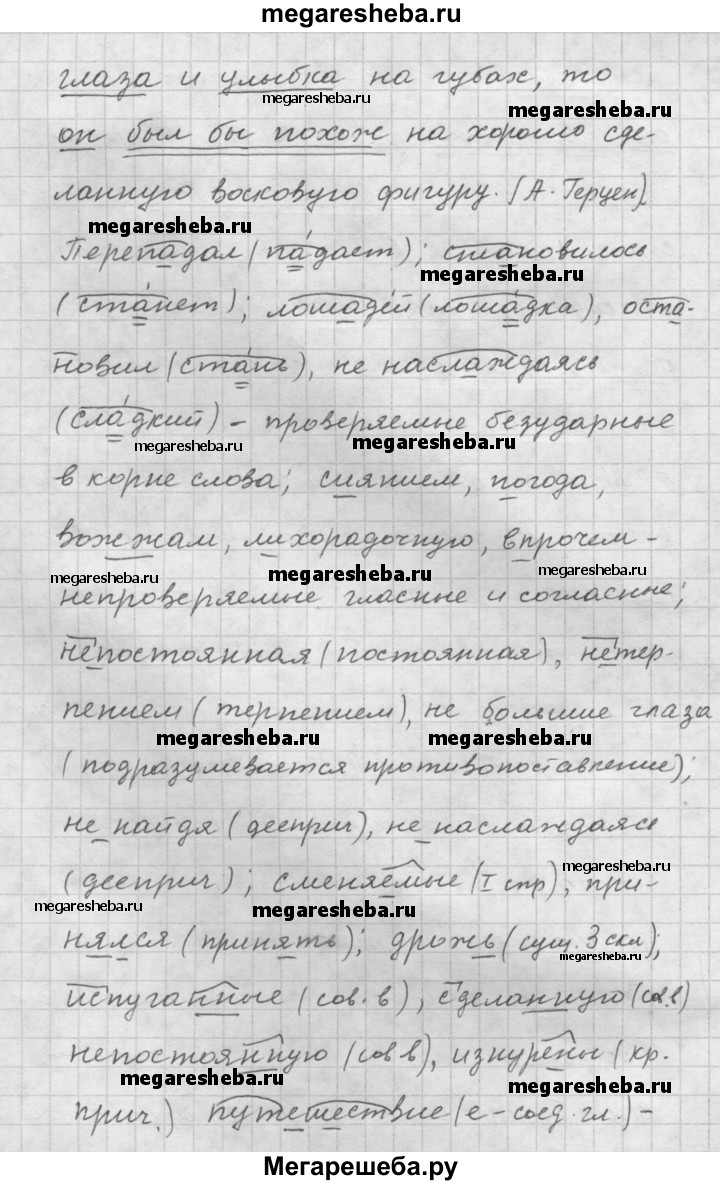 megaresheba.ru
глаза и улыбка на губах, то
megaresheba.ru
megaresheba.ru
он был бы похож на хорошо сде-
ланную восковую фигуру. (А. Герцен)
megaresheba.ru
Перепадал (па́дает); становилось
megaresheba.ru
(ста́нет); лошадей (лоша́дка), оста-
новил (ста́нь), не наслаждаясь
(сла́дкий) - проверяемые безударные
megaresheba.ru
megaresheba.ru
в корне слова; сиянием, погода,
вожжам, лихорадочную, впрочем -
megaresheba.ru
megaresheba.ru
megaresheba.ru
непроверяемые гласные и согласные;
непостоянная (постоянная), нетер-
пением (терпением), не большие глаза
megaresheba.ru
megaresheba.ru
(подразумевается противопоставление);
не найдя (дееприч), не наслаждаясь
(дееприч); сменяемые (I спр), при-
megaresheba.ru
megaresheba.ru
megaresheba.ru
нялся (принять); дрожь (сущ. 3 скл);
megaresheba.ru
испуганные (сов. в), сделанную (сов.в)
непостоянную (сов в), изнурены (кр.
megaresheba.ru
megaresheba.ru
прич.) путешествие (е - соед. гл.) -
Мегарешеба.ру